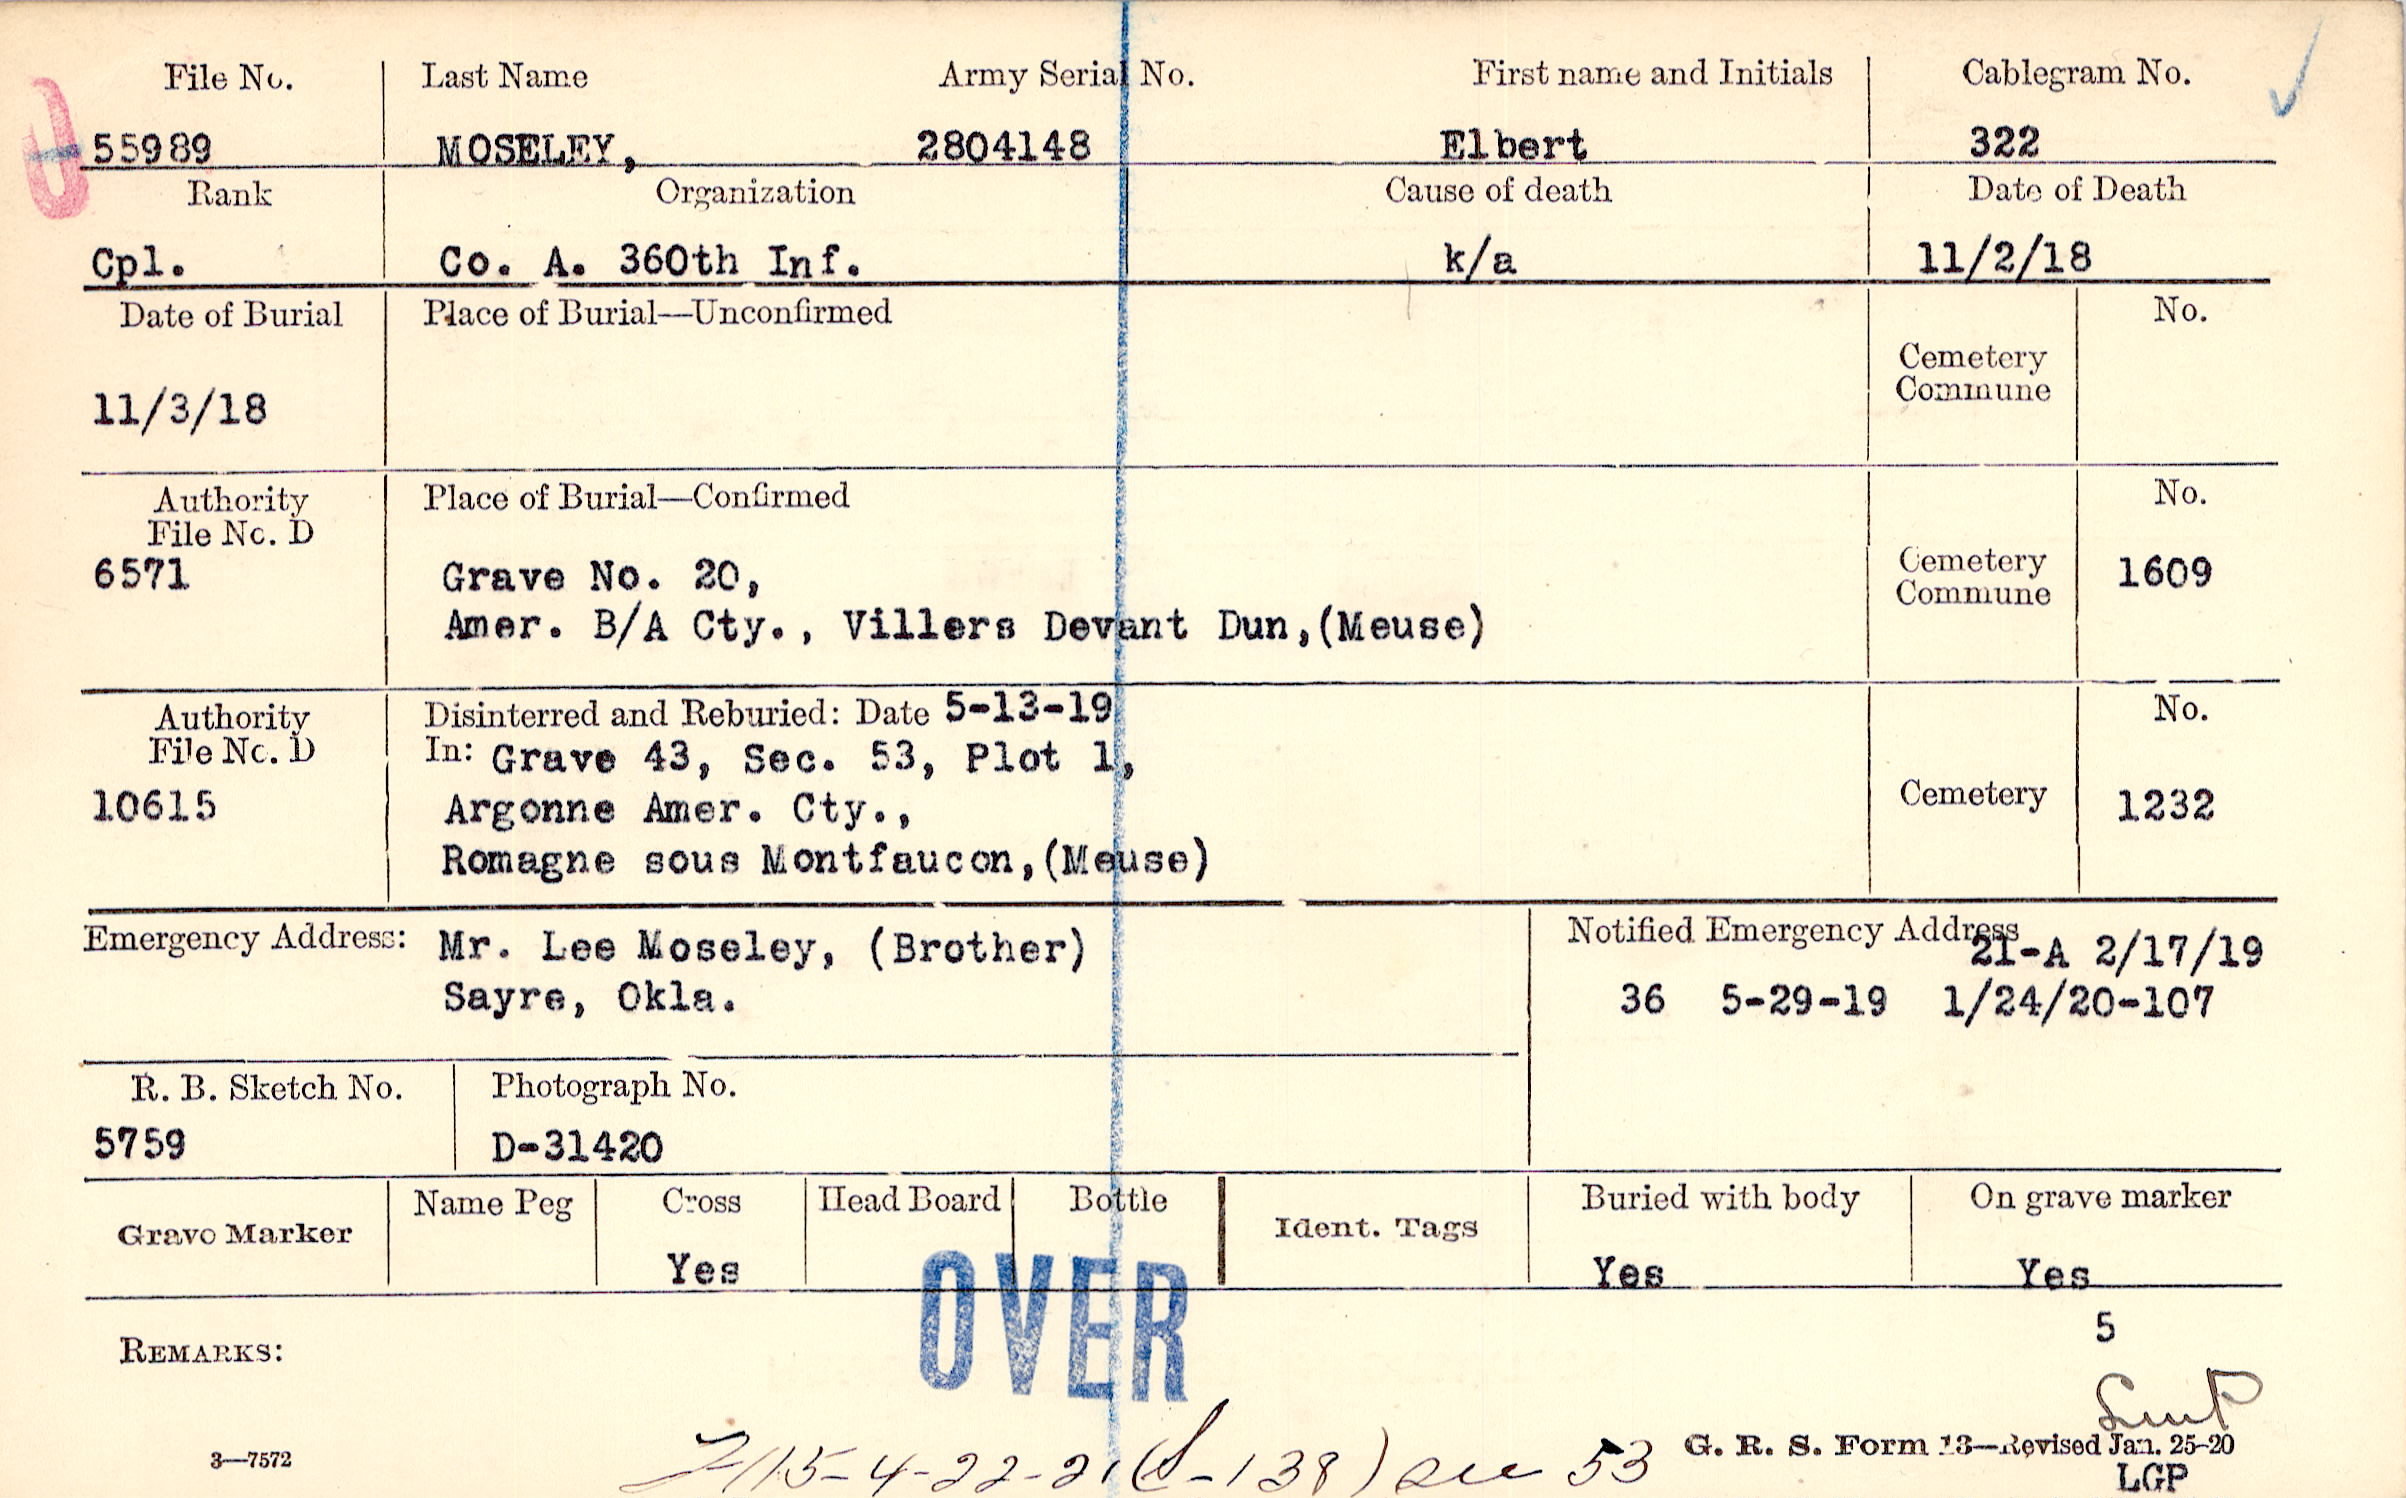 File No. Last Name Army Serial No. First name and Initials Cablegram No.
55989 MOSELEY, 2804148 Elbert 322
Rank Organization Cause of death Date of Death
Cpl. Co. A. 360th Inf. k/a 11/2/18
Date of Burial Place of Burial—Unconfirmed No.
Cemetery
Commune
11/3/18
Authority Place of Burial—Confirmed No.
File No. D
6571 Grave No. 20, Cemetery 1609
Commune
Amer. B/A Cty., Villers Devant Dun,(Meuse)
Authority Disinterred and Reburied: Date 5-13-19 No.
File No. D In: Grave 43, Sec. 53, Plot 1,
10615 Argonne Amer. Cty., Cemetery 1232
Romagne sous Montfaucon,(Meuse)
Emergency Address: Mr. Lee Moseley, (Brother) Notified Emergency Address 21-A 2/17/19
Sayre, Okla. 36 5-29-19 1/24/20-107
R. B. Sketch No. Photograph No.
5759 D-31420
Grave Marker Name Peg Cross Head Board Bottle Ident. Tags Buried with body On grave marker
Yes Yes Yes
OVER
5
REMARKS:
3—7572 (S-138) 53 G. R. S. Form 13—Revised Jan. 25-20
LGP